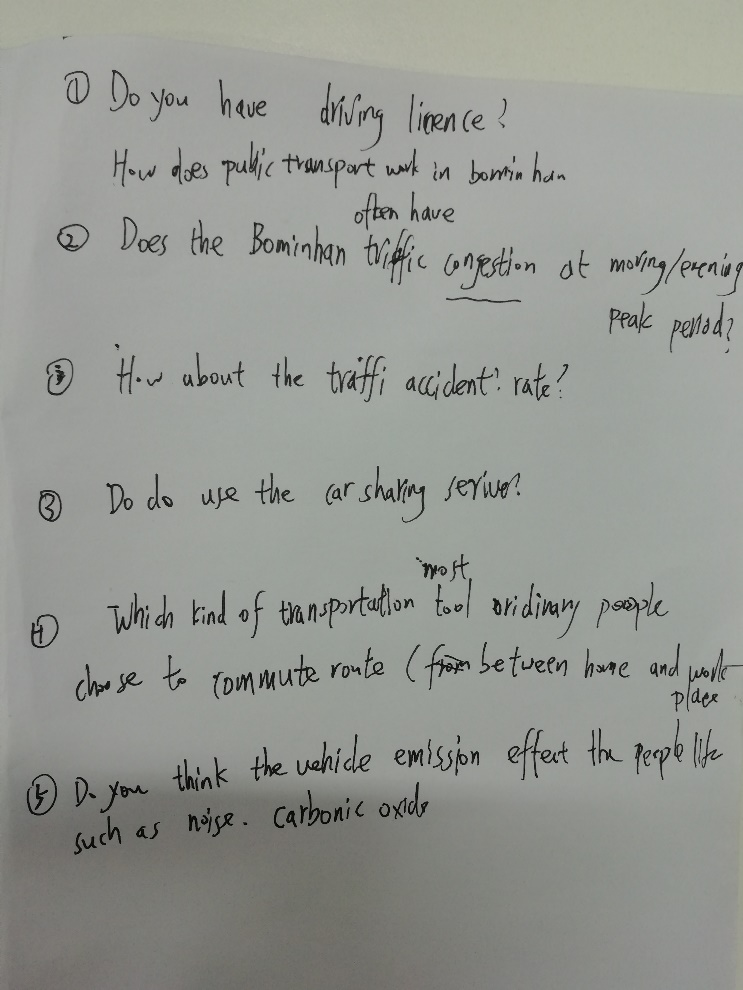 ① Do you have driving licence?
How does public transport work in bominhan
often have
② Does the Bominhan traffic congestion at moving/evening
peak period?
③ How about the traffi accident: rate?
③ Do do use the car sharing serive?
most
④ Which kind of transportation tool oridinary people
choose to commute route (from between home and work
place
⑤ Do you think the vehicle emission effect the people life
such as noise. carbonic oxide